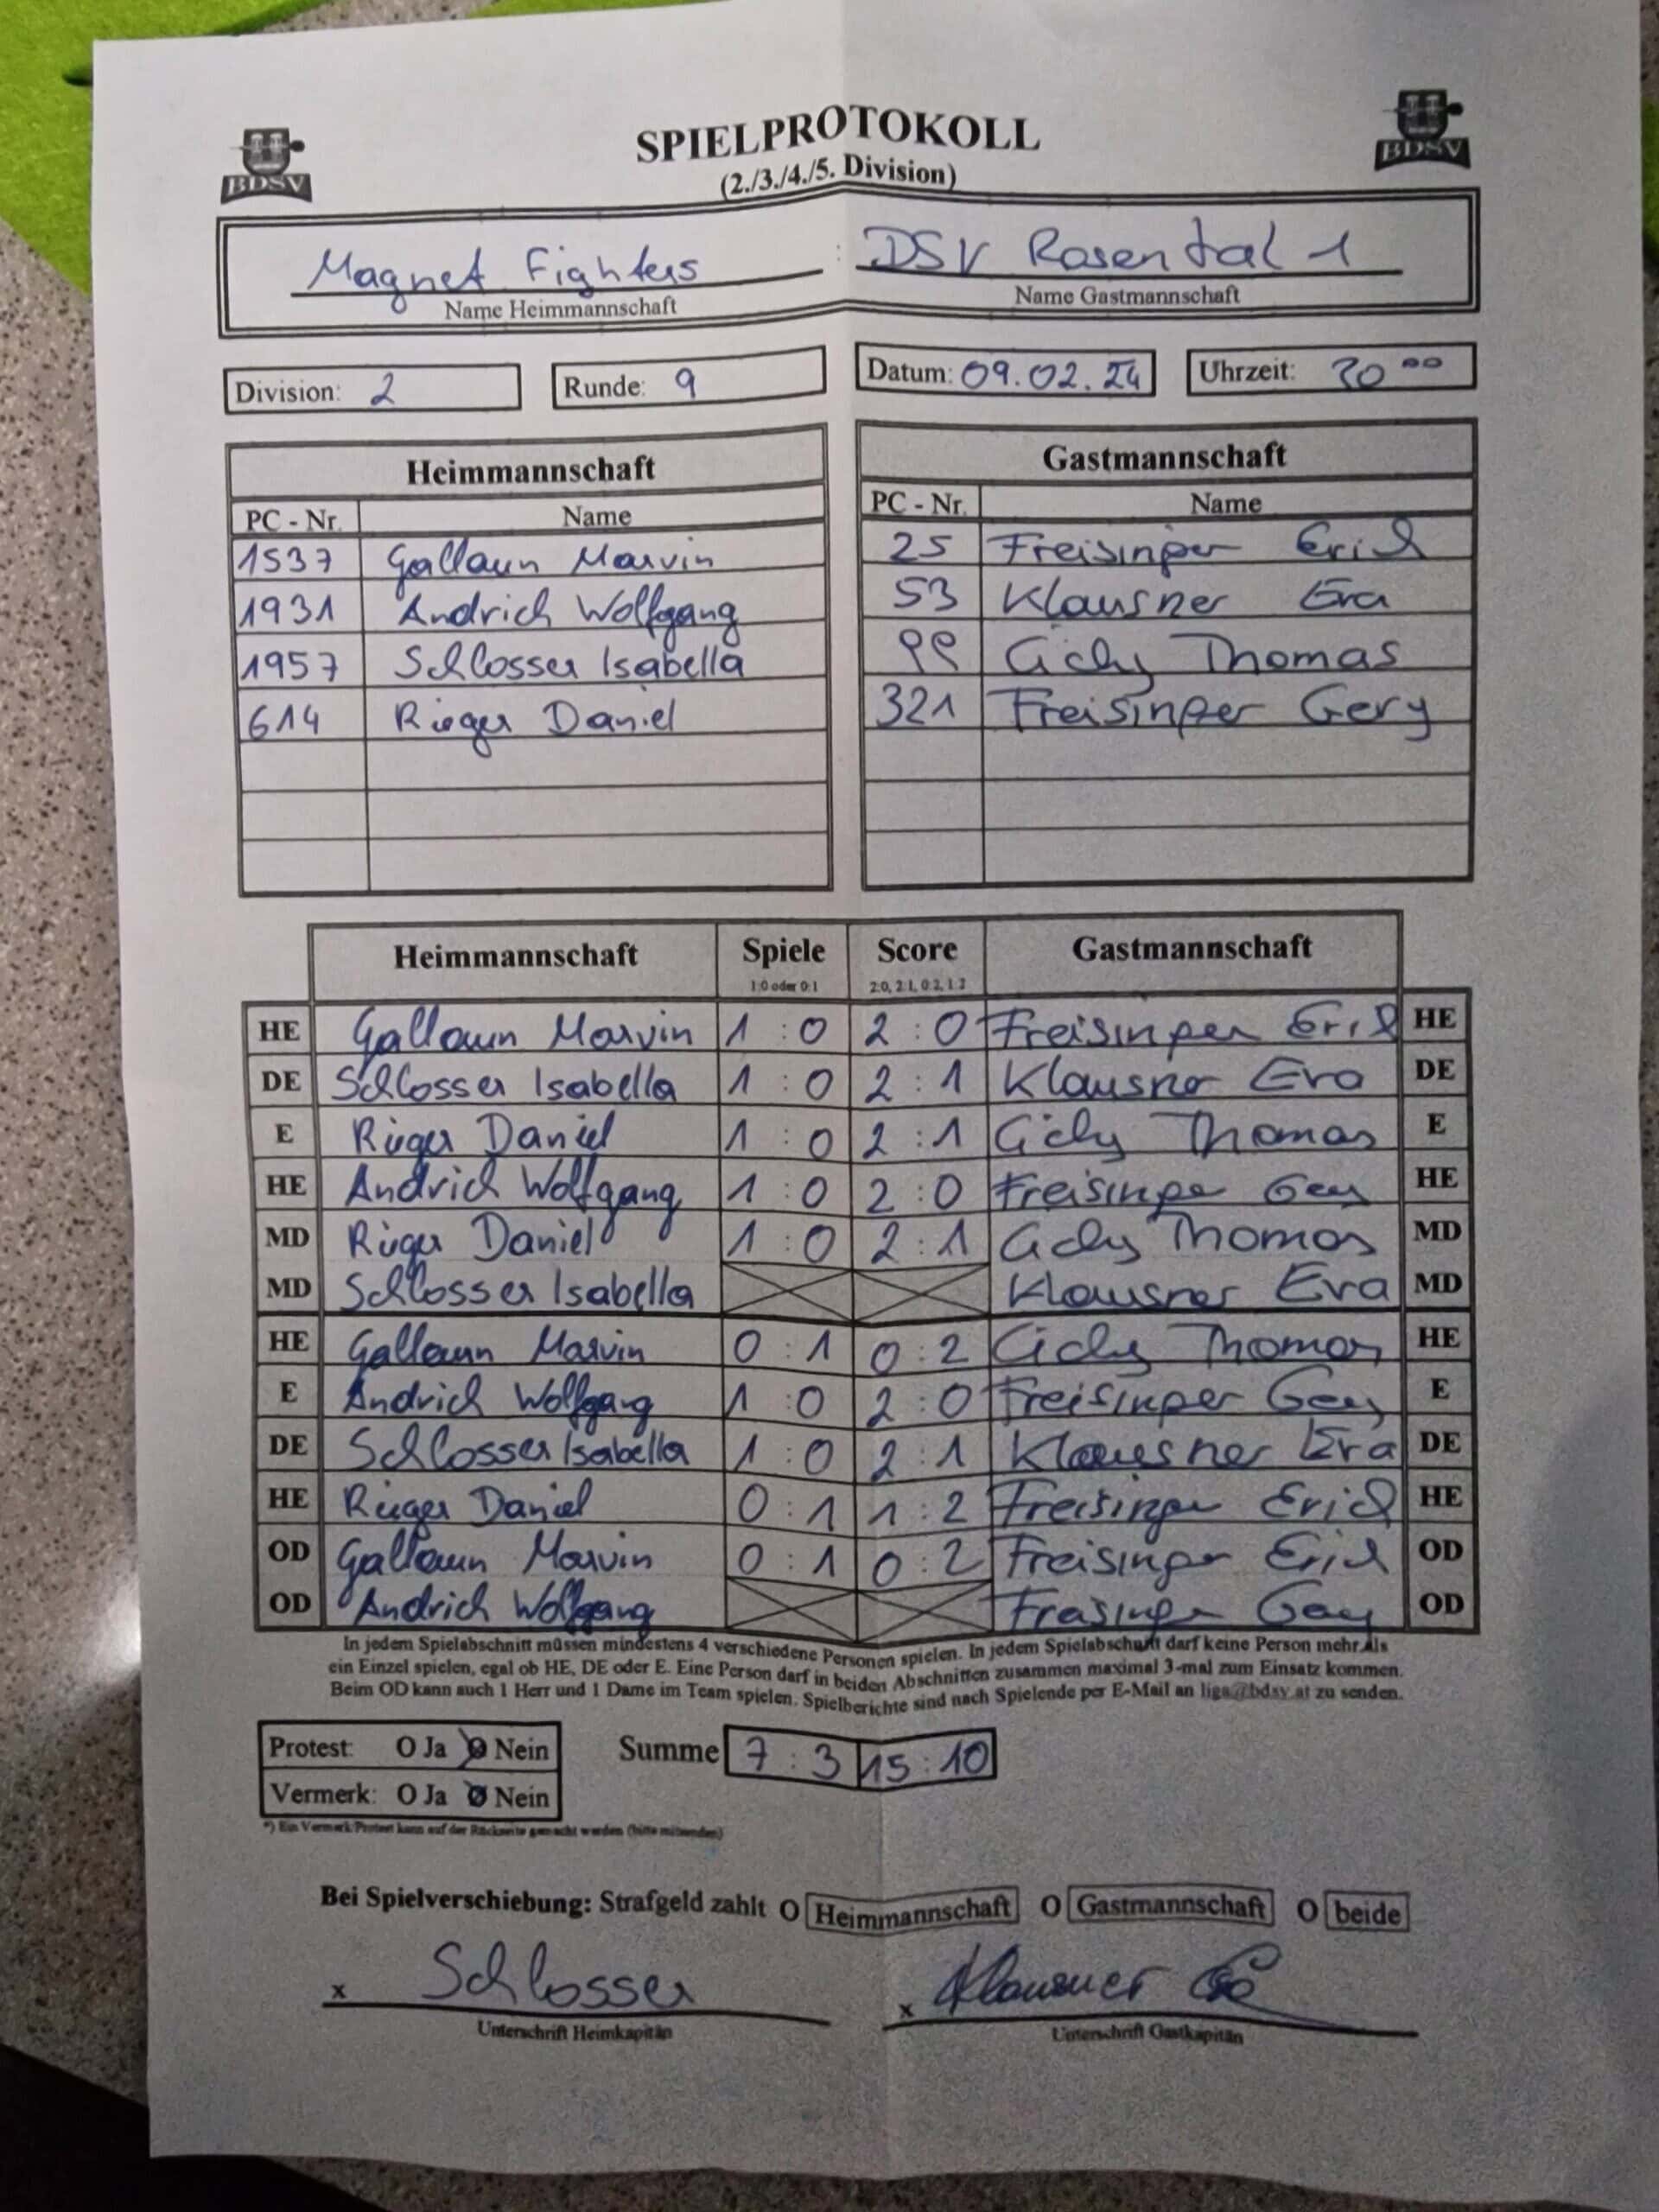 SPIELPROTOKOLL
(2./3./4./5. Division)
BDSV BDSV
Magnet Fighters : DSV Rosental 1
Name Heimmannschaft Name Gastmannschaft
Division: 2 Runde: 9 Datum: 09.02.24 Uhrzeit: 20 00
Heimmannschaft Gastmannschaft
PC - Nr. Name PC - Nr. Name
1537 Gallaun Marvin 25 Freisinger Erich
1931 Andrich Wolfgang 53 Klausner Eva
1957 Schlosser Isabella 99 Cichy Thomas
614 Rieger Daniel 321 Freisinger Gery
Heimmannschaft Spiele Score Gastmannschaft
1:0 oder 0:1 2:0, 2:1, 0:2, 1:2
HE Gallaun Marvin 1 : 0 2 : 0 Freisinger Erich HE
DE Schlosser Isabella 1 : 0 2 : 1 Klausner Eva DE
E Rieger Daniel 1 : 0 2 : 1 Cichy Thomas E
HE Andrich Wolfgang 1 : 0 2 : 0 Freisinger Gery HE
MD Rieger Daniel 1 : 0 2 : 1 Cichy Thomas MD
MD Schlosser Isabella Klausner Eva MD
HE Gallaun Marvin 0 : 1 0 : 2 Cichy Thomas HE
E Andrich Wolfgang 1 : 0 2 : 0 Freisinger Gery E
DE Schlosser Isabella 1 : 0 2 : 1 Klausner Eva DE
HE Rieger Daniel 0 : 1 1 : 2 Freisinger Erich HE
OD Gallaun Marvin 0 : 1 0 : 2 Freisinger Erich OD
OD Andrich Wolfgang Freisinger Gery OD
In jedem Spielabschnitt müssen mindestens 4 verschiedene Personen spielen. In jedem Spielabschnitt darf keine Person mehr als
ein Einzel spielen, egal ob HE, DE oder E. Eine Person darf in beiden Abschnitten zusammen maximal 3-mal zum Einsatz kommen.
Beim OD kann auch 1 Herr und 1 Dame im Team spielen. Spielberichte sind nach Spielende per E-Mail an liga@bdsv.at zu senden.
Protest: O Ja O Nein Summe 7 : 3 15 : 10
Vermerk: O Ja O Nein
*) Ein Vermerk/Protest kann auf der Rückseite gemacht werden (bitte mitsenden)
Bei Spielverschiebung: Strafgeld zahlt O Heimmannschaft O Gastmannschaft O beide
x Schlosser x Klausner Eva
Unterschrift Heimkapitän Unterschrift Gastkapitän